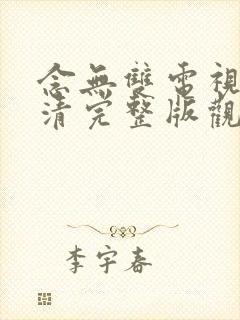 念無雙電視
清完整版觀
李宇春